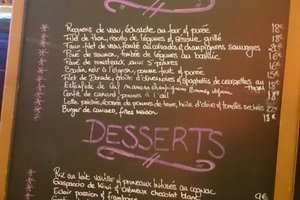 Rognons de veau, échalote au far & purée 18€
Filet de thon, risotto de légumes & sésame, grillé 18€
Faux-filet de veau, flambé au calvados & champignons sauvages 20€
Pavé de saumon, tombée de légumes au basilic 16€
Pavé de rumsteak aux 5 poivres 16€
Boudin noir à l'oignon, pomme fruit & purée 15€
Filet de Daurade, huile d'olives & spaghettis de courgettes au 18€
Confit de canard, pommes à l'ail 18€
Lotte poêlée, pommes de terre, huile d'olive & tomates séchées 22€
Burger de canard, frites maison 18€
DESSERTS
Riz au lait vanille & pruneaux infusés au cognac
Gaspacho de kiwi & crémeux chocolat blanc 9€
Éclair passion & framboise